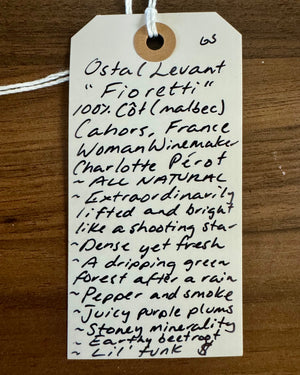 GS
Ostal Levant
"Fioretti"
100% Côt (malbec)
Cahors, France
Woman Winemaker
Charlotte Pérot
~ ALL NATURAL
~ Extraordinarily
lifted and bright
like a shooting star
~ Dense yet fresh
~ A dripping green
forest after a rain
~ Pepper and smoke
~ Juicy purple plums
~ Stoney minerality
~ Earthy beetroot
~ Lil' funk